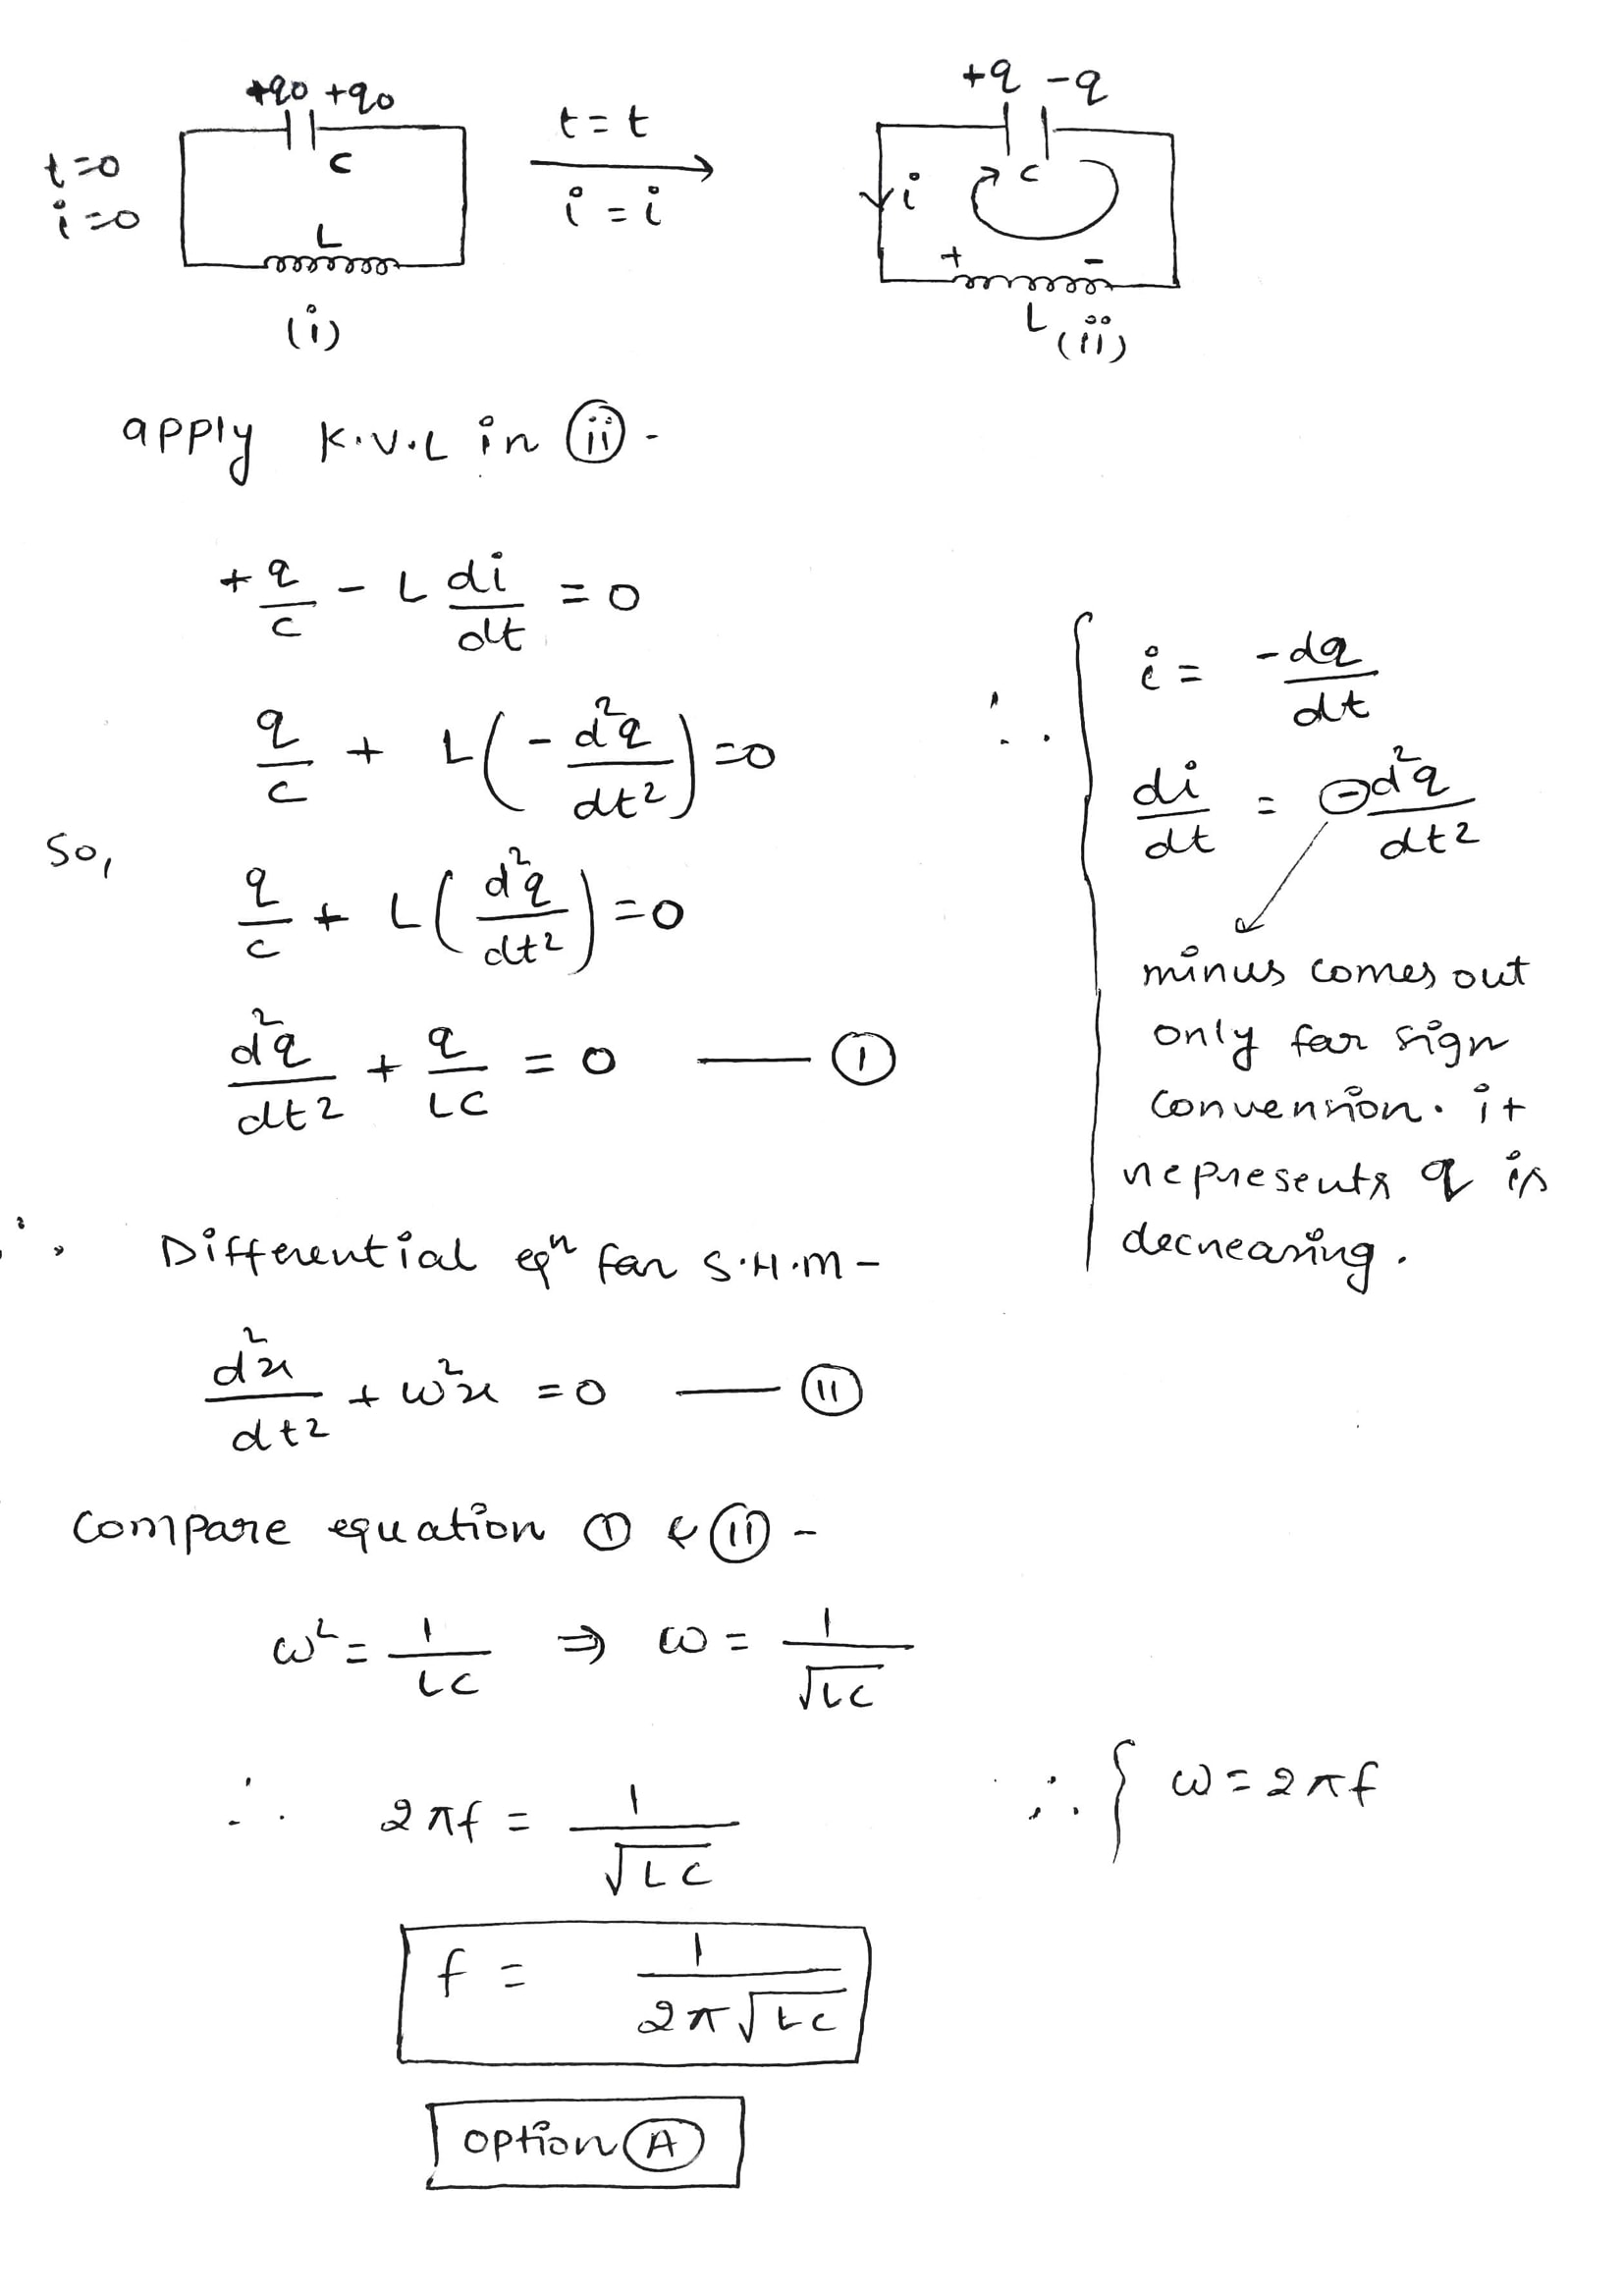 +q0 +q0
t=0
i=0
C
L
(i)
t=t
i=i
+q -q
i
C
+ -
L
(ii)
apply K.V.L in (ii) -
+q/c - L di/dt = 0
q/c + L(-d²q/dt²)=0
So,
q/c + L(d²q/dt²)=0
d²q/dt² + q/LC = 0 —— (I)
∴ { i = -dq/dt
di/dt = ⊖d²q/dt²
minus comes out
only for sign
convension. it
represents q is
decreasing.
∴ Differential eqⁿ for S.H.M -
d²x/dt² + ω²x = 0 —— (II)
Compare equation (I) & (II) -
ω² = 1/LC ⇒ ω = 1/√LC
∴ 2πf = 1/√LC
∴ { ω = 2πf
f = 1/2π√LC
option (A)